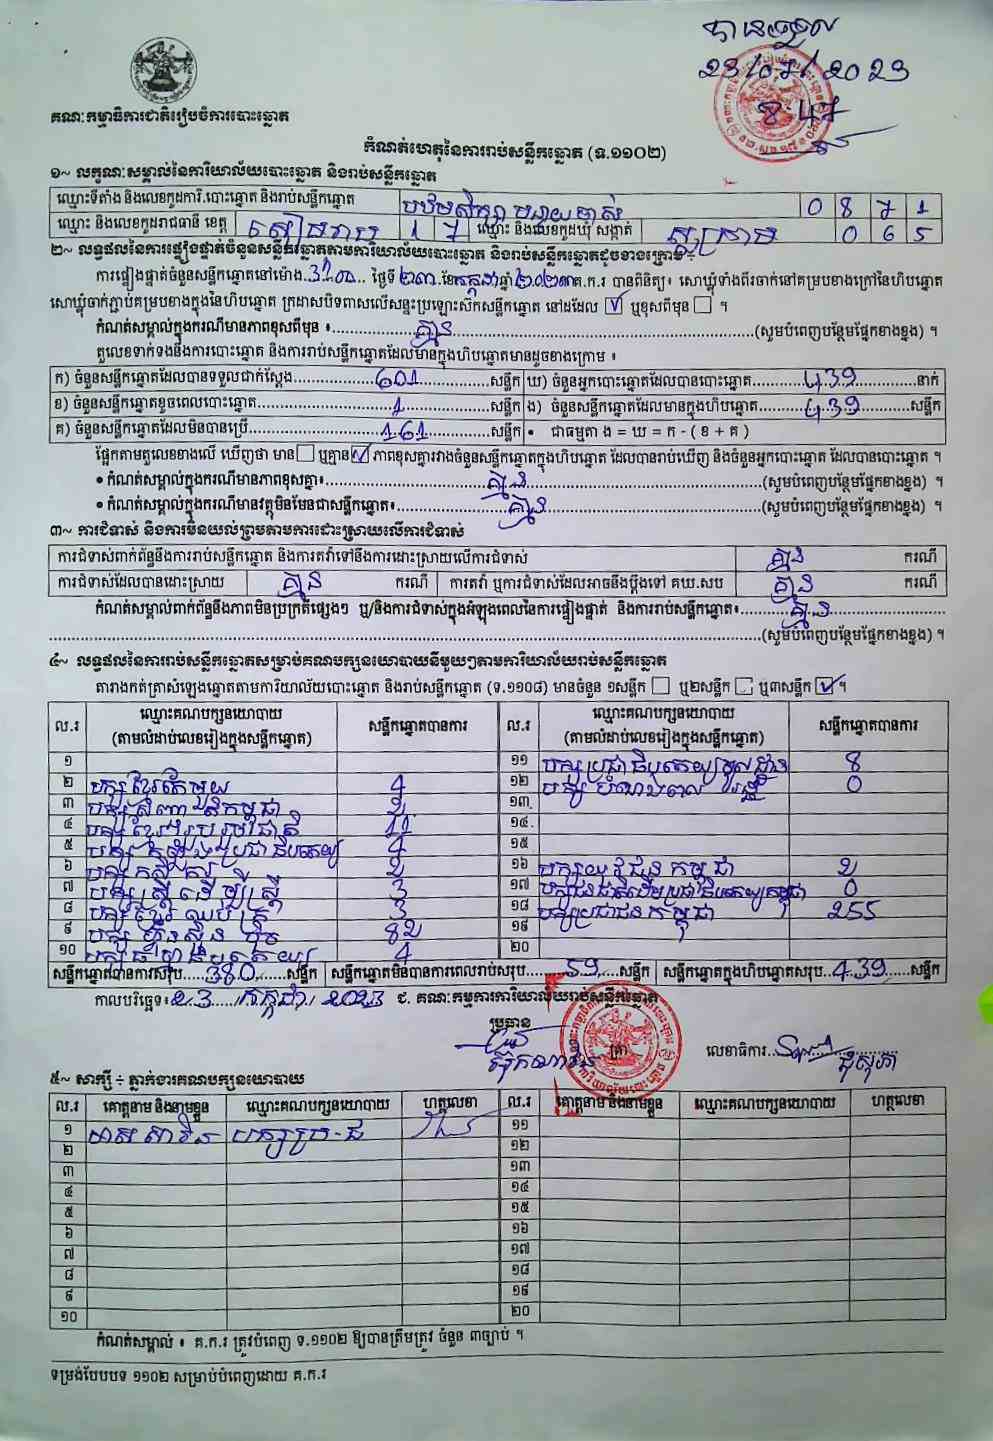 បានទទួល
23/07/2023
8:47
គណៈកម្មាធិការជាតិរៀបចំការបោះឆ្នោត
កំណត់ហេតុនៃការរាប់សន្លឹកឆ្នោត (ទ.១១០២)
១~ លក្ខណៈសម្គាល់នៃការិយាល័យបោះឆ្នោត និងរាប់សន្លឹកឆ្នោត
ឈ្មោះទីតាំង និងលេខកូដការិ.បោះឆ្នោត និងរាប់សន្លឹកឆ្នោត បឋមសិក្សា 0 8 7 1
ឈ្មោះ និងលេខកូដរាជធានី ខេត្ត សៀមរាប 1 7 ឈ្មោះ និងលេខកូដឃុំ សង្កាត់ 0 6 5
២~ លទ្ធផលនៃការផ្ទៀងផ្ទាត់ចំនួនសន្លឹកឆ្នោតតាមការិយាល័យបោះឆ្នោត និងរាប់សន្លឹកឆ្នោតដូចខាងក្រោម ÷
ការផ្ទៀងផ្ទាត់ចំនួនសន្លឹកឆ្នោតនៅម៉ោង ថ្ងៃទី ២៣ ខែ កក្កដា ឆ្នាំ ២០២៣ គ.ក.រ បានពិនិត្យ៖ សោឃ្លុំទាំងពីរចាក់នៅគម្របខាងក្រៅនៃហិបឆ្នោត
សោឃ្លុំចាក់ភ្ជាប់គម្របខាងក្នុងនៃហិបឆ្នោត ក្រដាសបិទពាសលើសន្ទះប្រឡោះស៊កសន្លឹកឆ្នោត នៅដដែល ☑ ឬខុសពីមុន ☐ ។
កំណត់សម្គាល់ក្នុងករណីមានភាពខុសពីមុន ៖ គ្មាន (សូមបំពេញបន្ថែមផ្នែកខាងខ្នង) ។
តួលេខទាក់ទងនឹងការបោះឆ្នោត និងការរាប់សន្លឹកឆ្នោតដែលមានក្នុងហិបឆ្នោតមានដូចខាងក្រោម ៖
ក) ចំនួនសន្លឹកឆ្នោតដែលបានទទួលជាក់ស្តែង 601 សន្លឹក ឃ) ចំនួនអ្នកបោះឆ្នោតដែលបានបោះឆ្នោត 439 នាក់
ខ) ចំនួនសន្លឹកឆ្នោតខូចពេលបោះឆ្នោត 1 សន្លឹក ង) ចំនួនសន្លឹកឆ្នោតដែលមានក្នុងហិបឆ្នោត 439 សន្លឹក
គ) ចំនួនសន្លឹកឆ្នោតដែលមិនបានប្រើ 161 សន្លឹក • ជាធម្មតា ង = ឃ = ក - ( ខ + គ )
ផ្អែកតាមតួលេខខាងលើ ឃើញថា មាន ☐ ឬគ្មាន ☑ ភាពខុសគ្នារវាងចំនួនសន្លឹកឆ្នោតក្នុងហិបឆ្នោត ដែលបានរាប់ឃើញ និងចំនួនអ្នកបោះឆ្នោត ដែលបានបោះឆ្នោត ។
• កំណត់សម្គាល់ក្នុងករណីមានភាពខុសគ្នា៖ គ្មាន (សូមបំពេញបន្ថែមផ្នែកខាងខ្នង) ។
• កំណត់សម្គាល់ក្នុងករណីមានវត្ថុមិនមែនជាសន្លឹកឆ្នោត៖ គ្មាន (សូមបំពេញបន្ថែមផ្នែកខាងខ្នង) ។
៣~ ការជំទាស់ និងការមិនយល់ព្រមតាមការដោះស្រាយលើការជំទាស់
ការជំទាស់ពាក់ព័ន្ធនឹងការរាប់សន្លឹកឆ្នោត និងការតវ៉ាទៅនឹងការដោះស្រាយលើការជំទាស់ គ្មាន ករណី
ការជំទាស់ដែលបានដោះស្រាយ គ្មាន ករណី ការតវ៉ា ឬការជំទាស់ដែលអាចនឹងប្តឹងទៅ គឃ.សប គ្មាន ករណី
កំណត់សម្គាល់ពាក់ព័ន្ធនឹងភាពមិនប្រក្រតីផ្សេងៗ ឬ/និងការជំទាស់ក្នុងអំឡុងពេលនៃការផ្ទៀងផ្ទាត់ និងការរាប់សន្លឹកឆ្នោត៖ គ្មាន
(សូមបំពេញបន្ថែមផ្នែកខាងខ្នង) ។
៤~ លទ្ធផលនៃការរាប់សន្លឹកឆ្នោតសម្រាប់គណបក្សនយោបាយនីមួយៗតាមការិយាល័យរាប់សន្លឹកឆ្នោត
តារាងកត់ត្រាសំឡេងឆ្នោតតាមការិយាល័យបោះឆ្នោត និងរាប់សន្លឹកឆ្នោត (ទ.១១០៨) មានចំនួន ១សន្លឹក ☐ ឬ២សន្លឹក ☐ ឬ៣សន្លឹក ☑ ។
ល.រ ឈ្មោះគណបក្សនយោបាយ សន្លឹកឆ្នោតបានការ ល.រ ឈ្មោះគណបក្សនយោបាយ សន្លឹកឆ្នោតបានការ
(តាមលំដាប់លេខរៀងក្នុងសន្លឹកឆ្នោត) (តាមលំដាប់លេខរៀងក្នុងសន្លឹកឆ្នោត)
១ ១១ បក្សប្រជាធិបតេយ្យមូលដ្ឋាន 8
២ បក្សខ្មែរតែមួយ 4 ១២ បក្ស 0
៣ បក្ស ១៣
៤ បក្សខ្មែរ 11 ១៤
៥ បក្ស ប្រជាធិបតេយ្យ 4 ១៥
៦ បក្សកសិករ 2 ១៦ បក្សយុវជនកម្ពុជា 2
៧ បក្សស្ត្រីដើម្បីស្ត្រី 3 ១៧ បក្សជនជាតិដើមប្រជាធិបតេយ្យកម្ពុជា 0
៨ បក្សខ្មែរឈប់ក្រ 3 ១៨ បក្សប្រជាជនកម្ពុជា 255
៩ បក្សហ៊្វុនស៊ិនប៉ិច 82 ១៩
១០ បក្សធម្មាធិបតេយ្យ 4 ២០
សន្លឹកឆ្នោតបានការសរុប 380 សន្លឹក សន្លឹកឆ្នោតមិនបានការពេលរាប់សរុប 59 សន្លឹក សន្លឹកឆ្នោតក្នុងហិបឆ្នោតសរុប 439 សន្លឹក
កាលបរិច្ឆេទ៖ 23 / កក្កដា / 2023 ជ. គណៈកម្មការការិយាល័យរាប់សន្លឹកឆ្នោត
ប្រធាន
លេខាធិការ
៥~ សាក្សី ÷ ភ្នាក់ងារគណបក្សនយោបាយ
ល.រ គោត្តនាម និងនាមខ្លួន ឈ្មោះគណបក្សនយោបាយ ហត្ថលេខា ល.រ គោត្តនាម និងនាមខ្លួន ឈ្មោះគណបក្សនយោបាយ ហត្ថលេខា
១ បក្សប្រ-ជ ១១
២ ១២
៣ ១៣
៤ ១៤
៥ ១៥
៦ ១៦
៧ ១៧
៨ ១៨
៩ ១៩
១០ ២០
កំណត់សម្គាល់ ៖ គ.ក.រ ត្រូវបំពេញ ទ.១១០២ ឱ្យបានត្រឹមត្រូវ ចំនួន ៣ច្បាប់ ។
ទម្រង់បែបបទ ១១០២ សម្រាប់បំពេញដោយ គ.ក.រ